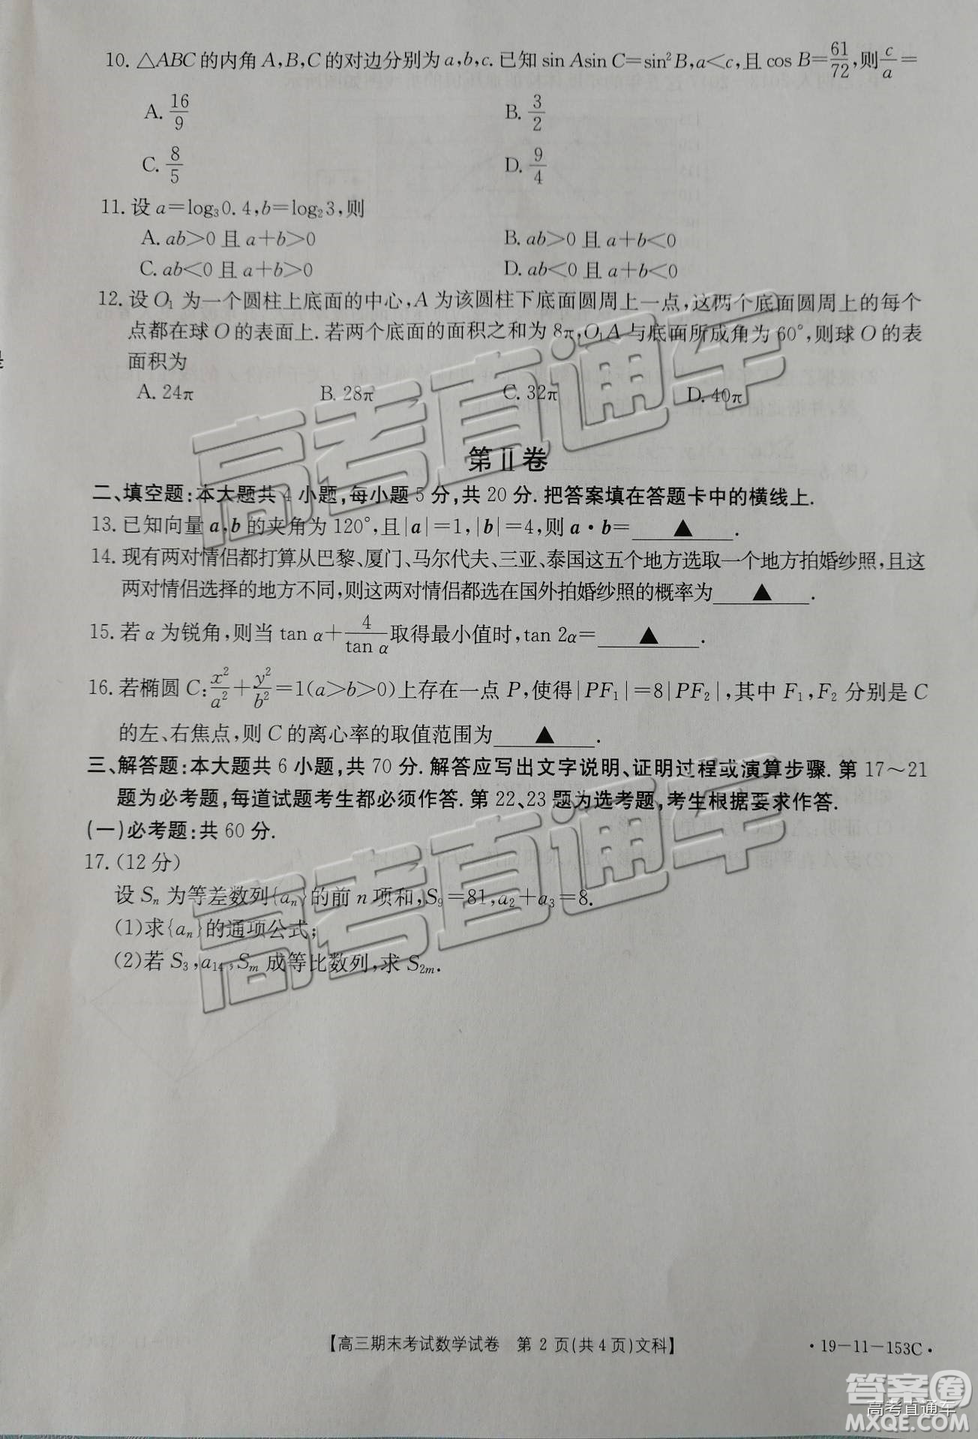 10. △ABC的内角A,B,C的对边分别为a,b,c.已知sin Asin C=sin²B,a<c,且cos B=61/72,则c/a=
A. 16/9 B. 3/2
C. 8/5 D. 9/4
11. 设a=log₃0.4,b=log₂3,则
A. ab>0且a+b>0 B. ab>0且a+b<0
C. ab<0且a+b>0 D. ab<0且a+b<0
12. 设O₁为一个圆柱上底面的中心,A为该圆柱下底面圆周上一点,这两个底面圆周上的每个
点都在球O的表面上.若两个底面的面积之和为8π,O₁A与底面所成角为60°,则球O的表
面积为
A. 24π B. 28π C. 32π D. 40π
第Ⅱ卷
二、填空题:本大题共4小题,每小题5分,共20分.把答案填在答题卡中的横线上.
13. 已知向量a,b的夹角为120°,且|a|=1,|b|=4,则a·b=▲.
14. 现有两对情侣都打算从巴黎、厦门、马尔代夫、三亚、泰国这五个地方选取一个地方拍婚纱照,且这
两对情侣选择的地方不同,则这两对情侣都选在国外拍婚纱照的概率为▲.
15. 若α为锐角,则当tan α+4/tan α取得最小值时,tan 2α=▲.
16. 若椭圆C:x²/a²+y²/b²=1(a>b>0)上存在一点P,使得|PF₁|=8|PF₂|,其中F₁,F₂分别是C
的左、右焦点,则C的离心率的取值范围为▲.
三、解答题:本大题共6小题,共70分.解答应写出文字说明、证明过程或演算步骤.第17~21
题为必考题,每道试题考生都必须作答.第22、23题为选考题,考生根据要求作答.
(一)必考题:共60分.
17. (12分)
设Sₙ为等差数列{aₙ}的前n项和,S₉=81,a₂+a₃=8.
(1)求{aₙ}的通项公式;
(2)若S₃,a₁₄,Sₘ成等比数列,求S₂ₘ.
【高三期末考试数学试卷 第2页(共4页)文科】
·19-11-153C·
高考直通车
高考直通车
答案圈
高考直通车
MXQE.COM